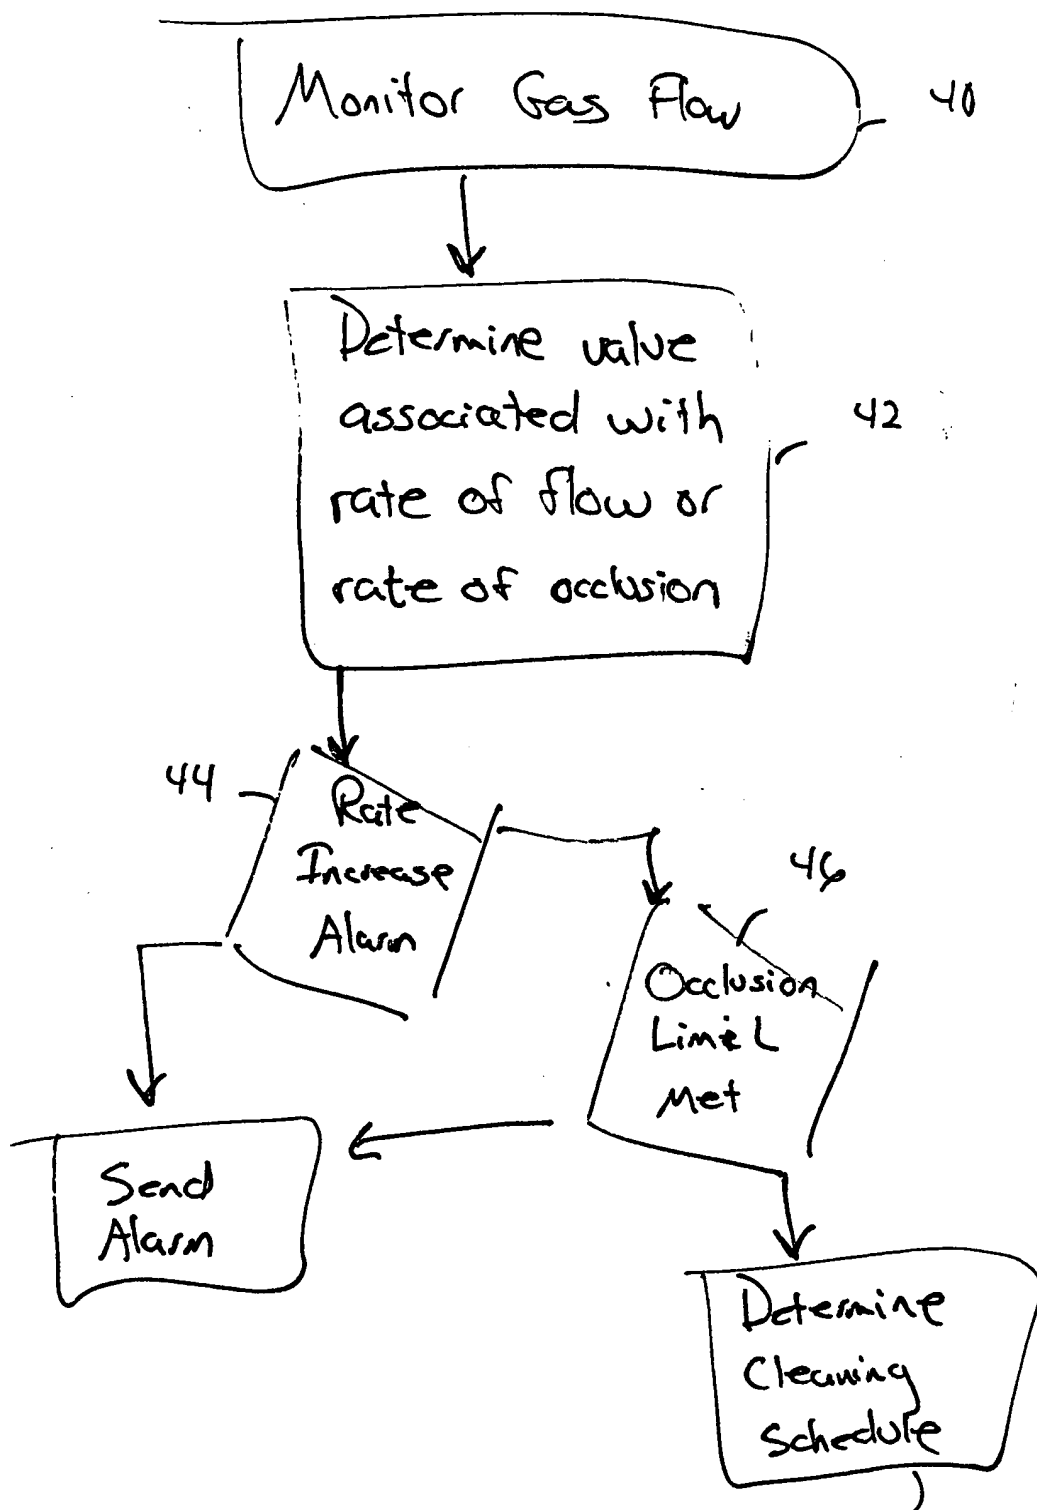 Monitor Gas Flow
40
Determine value
associated with
rate of flow or
rate of occlusion
42
44
Rate
Increase
Alarm
46
Occlusion
Limit
Met
Send
Alarm
Determine
Cleaning
Schedule